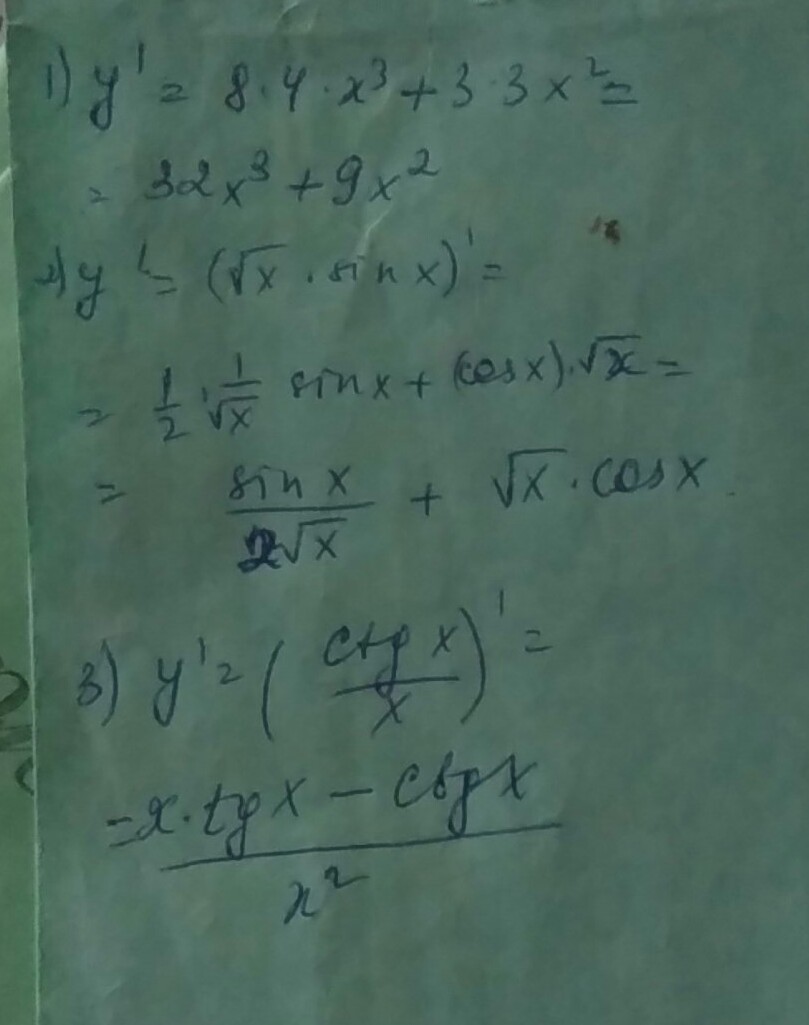 1) y' = 8·4·x³ + 3·3x² =
= 32x³ + 9x²
2) y' = (√x · sin x)' =
= 1/2 · 1/√x sin x + (cos x)·√x =
= sin x / 2√x + √x · cos x
3) y' = (ctg x / x)' =
= x·tg x − ctg x / x²